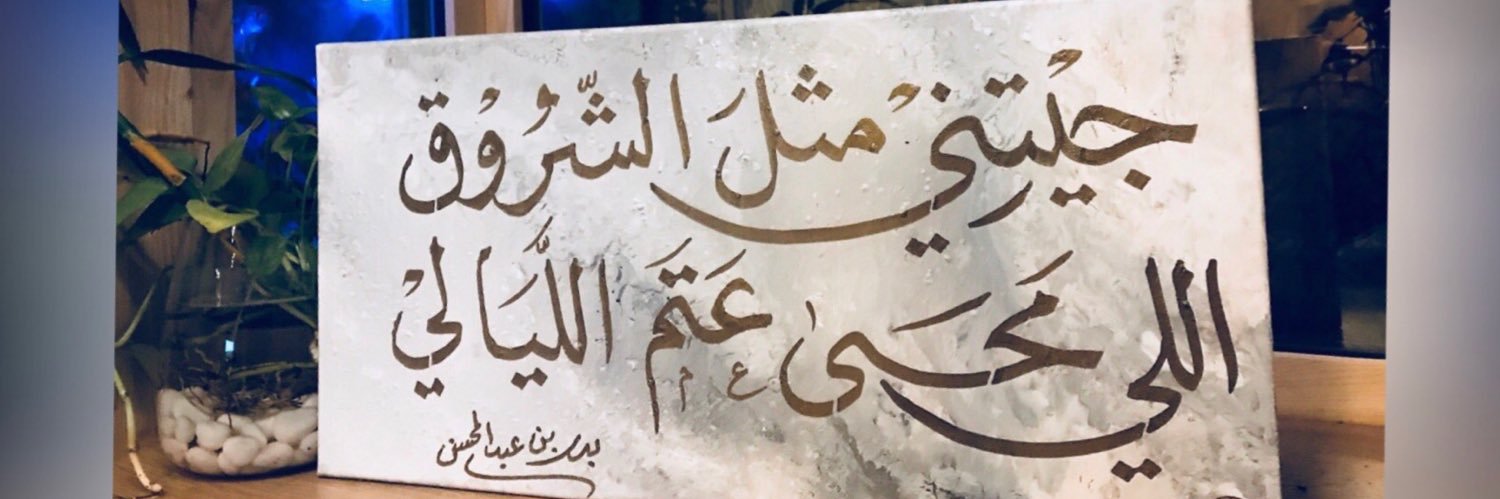 جيْتني مثلَ الشّرُوْق
اللي مَحَىٰ عَتَمَ اللَّيَاليْ
بدر بن عبدالمحسن